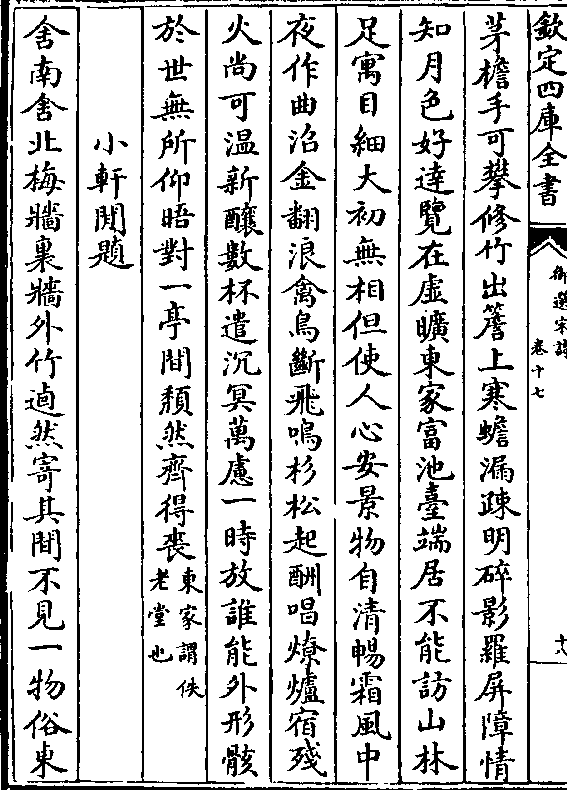 欽定四庫全書
御選宋詩
卷十七
十八
茅檐手可攀修竹出簷上寒蟾漏疎明碎影羅屏障情
知月色好達覽在虛曠東家富池臺端居不能訪山林
足寓目細大初無相但使人心安景物自清暢霜風中
夜作曲沼金翻浪禽鳥斷飛鳴杉松起酬唱燎爐宿殘
火尚可温新釀數杯遣沉冥萬慮一時放誰能外形骸
於世無所仰晤對一亭間頽然齊得喪東家謂佚老堂也
小軒閒題
舍南舍北梅牆裏牆外竹逌然寄其間不見一物俗東